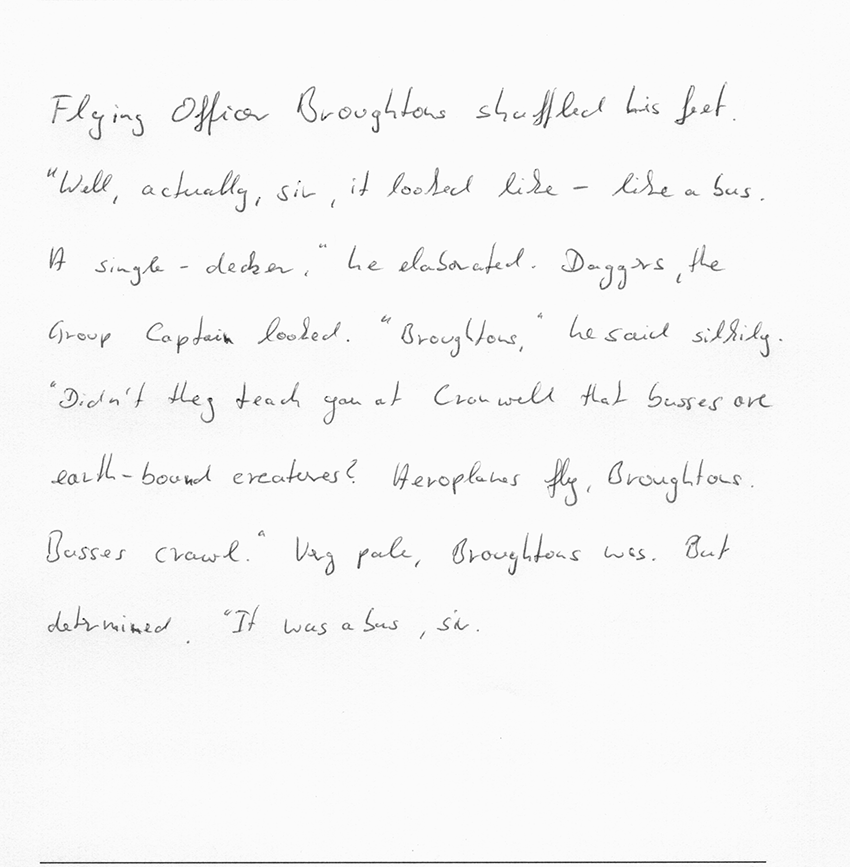 Flying Officer Broughtons shuffled his feet.
"Well, actually, sir, it looked like - like a bus.
A single-decker," he elaborated. Daggers, the
Group Captain looked. "Broughtons," he said silkily.
"Didn't they teach you at Cranwell that busses are
earth-bound creatures? Aeroplanes fly, Broughtons.
Busses crawl." Very pale, Broughtons was. But
determined. "It was a bus, sir.